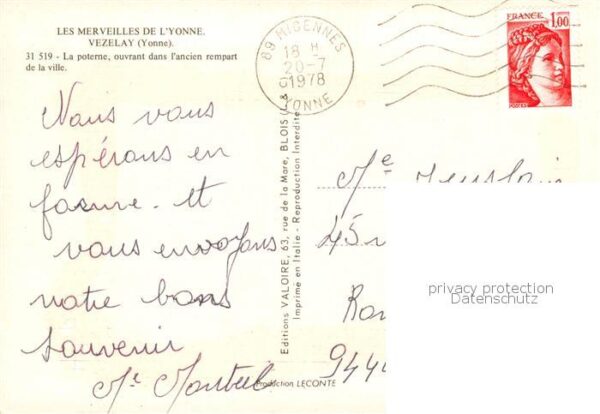 LES MERVEILLES DE L'YONNE.
VEZELAY (Yonne).
31 519 - La poterne, ouvrant dans l'ancien rempart
de la ville.
89 MIGENNES
18 H
20-7
1978
YONNE
FRANCE
1,00
Nous vous
espérons en
forme. et
vous envoyons
notre bons
souvenir
Me
Editions VALOIRE, 63, rue de la Mare, BLOIS
Imprimé en Italie - Reproduction Interdite
Production LECONTE
Me
45
9444
privacy protection
Datenschutz